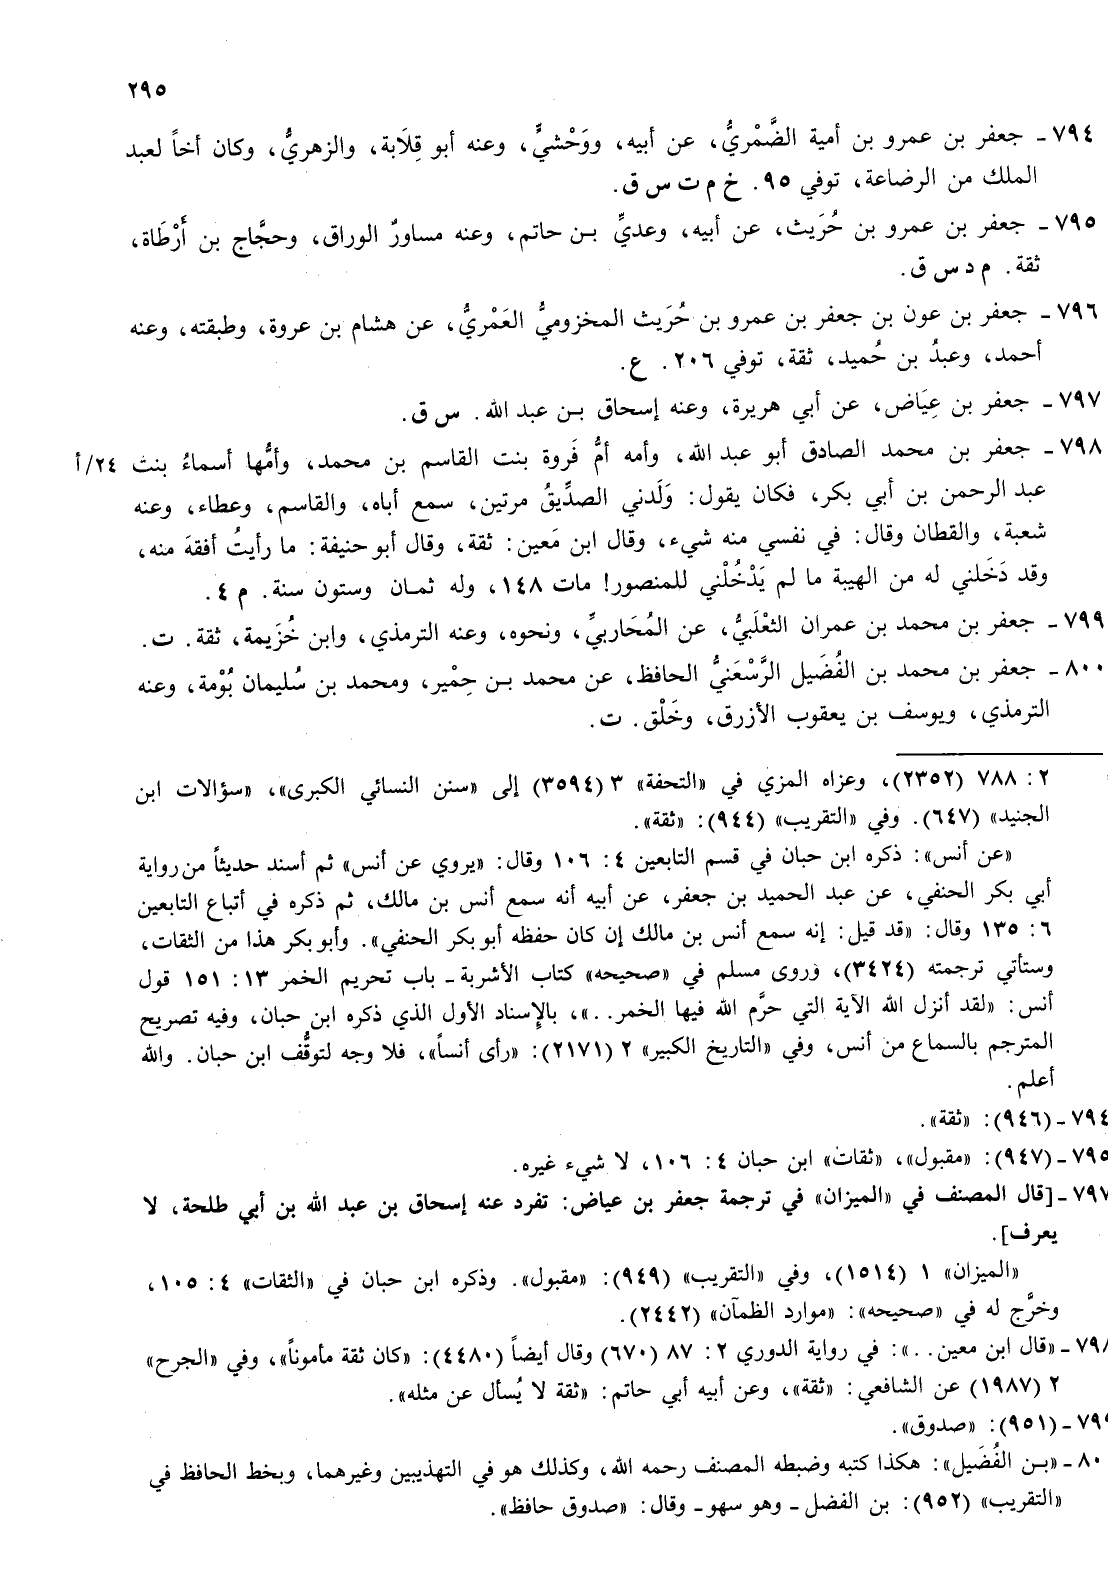 ٢٩٥
٧٩٤ - جعفر بن عمرو بن أمية الضَّمْريُّ، عن أبيه، ووَحْشيٍّ، وعنه أبو قِلَابة، والزهريُّ، وكان أخاً لعبد
الملك من الرضاعة، توفي ٩٥. خ م ت س ق.
٧٩٥ - جعفر بن عمرو بن حُرَيث، عن أبيه، وعديِّ بـن حاتم، وعنه مساورٌ الوراق، وحجَّاج بن أَرْطَاة،
ثقة. م د س ق.
٧٩٦ - جعفر بن عون بن جعفر بن عمرو بن حُرَيث المخزوميُّ العَمْريُّ، عن هشام بن عروة، وطبقته، وعنه
أحمد، وعبدُ بن حُميد، ثقة، توفي ٢٠٦. ع.
٧٩٧ - جعفر بن عِيَاض، عن أبي هريرة، وعنه إسحاق بـن عبد الله. س ق.
٧٩٨ - جعفر بن محمد الصادق أبو عبد الله، وأمه أمُّ فَروة بنت القاسم بن محمد، وأمُّها أسماءُ بنت ٢٤/أ
عبد الرحمن بن أبي بكر، فكان يقول: وَلَدني الصدِّيقُ مرتين، سمع أباه، والقاسم، وعطاء، وعنه
شعبة، والقطان وقال: في نفسي منه شيء، وقال ابن مَعين: ثقة، وقال أبو حنيفة: ما رأيتُ أفقهَ منه،
وقد دَخَلني له من الهيبة ما لم يَدْخُلْني للمنصور! مات ١٤٨، وله ثمـان وستون سنة. م ٤.
٧٩٩ - جعفر بن محمد بن عمران الثعْلَبيُّ، عن المُحَاربيِّ، ونحوه، وعنه الترمذي، وابن خُزَيمة، ثقة. ت.
٨٠٠ - جعفر بن محمد بن الفُضَيل الرَّسْعَنيُّ الحافظ، عن محمد بـن حِمْير، ومحمد بن سُليمان بُوْمة، وعنه
الترمذي، ويوسف بن يعقوب الأزرق، وخَلْق. ت.
٢: ٧٨٨ (٢٣٥٢)، وعزاه المزي في «التحفة» ٣ (٣٥٩٤) إلى «سنن النسائي الكبرى»، «سؤالات ابن
الجنيد» (٦٤٧). وفي «التقريب» (٩٤٤): «ثقة».
«عن أنس»: ذكره ابن حبان في قسم التابعين ٤: ١٠٦ وقال: «يروي عن أنس» ثم أسند حديثاً من رواية
أبي بكر الحنفي، عن عبد الحميد بن جعفر، عن أبيه أنه سمع أنس بن مالك، ثم ذكره في أتباع التابعين
٦: ١٣٥ وقال: «قد قيل: إنه سمع أنس بن مالك إن كان حفظه أبو بكر الحنفي». وأبو بكر هذا من الثقات،
وستأتي ترجمته (٣٤٢٤)، وروى مسلم في «صحيحه» كتاب الأشربة - باب تحريم الخمر ١٣: ١٥١ قول
أنس: «لقد أنزل الله الآية التي حرَّم الله فيها الخمر..»، بالإِسناد الأول الذي ذكره ابن حبان، وفيه تصريح
المترجم بالسماع من أنس، وفي «التاريخ الكبير» ٢ (٢١٧١): «رأى أنساً»، فلا وجه لتوقُّف ابن حبان. والله
أعلم.
٧٩٤ - (٩٤٦): «ثقة».
٧٩٥ - (٩٤٧): «مقبول»، «ثقات» ابن حبان ٤: ١٠٦، لا شيء غيره.
٧٩٧ - [قال المصنف في «الميزان» في ترجمة جعفر بن عياض: تفرد عنه إسحاق بن عبد الله بن أبي طلحة، لا
يعرف].
«الميزان» ١ (١٥١٤)، وفي «التقريب» (٩٤٩): «مقبول». وذكره ابن حبان في «الثقات» ٤: ١٠٥،
وخرَّج له في «صحيحه»: «موارد الظمآن» (٢٤٤٢).
٧٩٨ - «قال ابن معين..»: في رواية الدوري ٢: ٨٧ (٦٧٠) وقال أيضاً (٤٤٨٠): «كان ثقة مأموناً»، وفي «الجرح»
٢ (١٩٨٧) عن الشافعي: «ثقة»، وعن أبيه أبي حاتم: «ثقة لا يُسأل عن مثله».
٧٩٩ - (٩٥١): «صدوق».
٨٠ - «بـن الفُضَيل»: هكذا كتبه وضبطه المصنف رحمه الله، وكذلك هو في التهذيبين وغيرهما، وبخط الحافظ في
«التقريب» (٩٥٢): بن الفضل - وهو سهو - وقال: «صدوق حافظ».